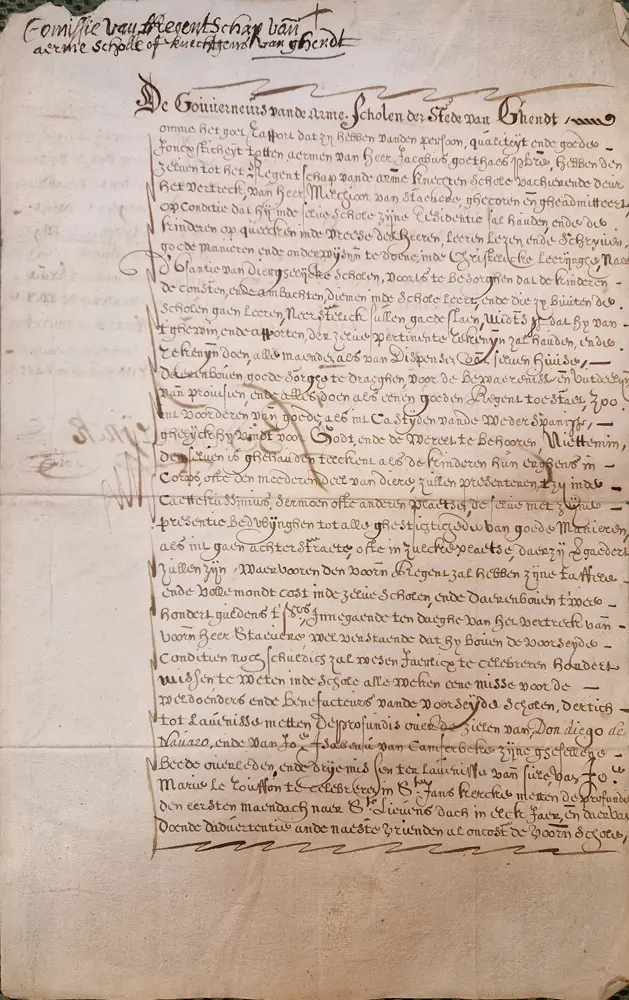 Comissie van Regentschap van
aerme Scholle of knechtgens van ghendt
De Gouverneurs vande Arme Scholen der Stede van Ghendt
omme het goet rapport dat zy hebben vanden persoon, qualiteyt ende goede
totten aermen van Heer Jacobus goethaes pbre, hebben den
zelven tot het Regentschap vande arme knechten Schole vacherende deur
het vertreck, van Heer Melchior van Staevere, ghecoren en gheadmitteert
op conditie dat hy inde selve Schole zyne residentie sal hauden, ende de
kinderen op queecken inde vreese des Heeren, leeren Lezen ende Schryven,
goede manieren, ende onderwysen te doene, inde Christelicke Leeringe, Naer
d'Usantie van diergelycke Scholen, voorts te besorghen dat de kinderen
de consten, ende ambachten, diemen inde Schole leert, ende die zy buuten de
Scholen gaen leeren, Neerstelick sullen gaede slaen, midts dat hy van
tghewin, ende apporten, der zelve pertinente rekenyn zal hauden, ende
rekenyn doen, alle maende, als van dispense selven huuse,
daerenboven goede sorghe te draeghen, voor de bewaernisse en
van provisien, ende alles doen als eenen goeden Regent toestaet, zoo
int voorderen van goede, als int Castyden vande
ghelyck hy vindt voor Godt, ende de Werelt te Behooren, Niettemin,
den selven is ghehauden telckent als de kinderen hun erghens in
Corps, ofte den meerderen deel van diere, zullen presenteren, tzy inde
Catechissimus, Sermoen ofte anderen plaetse, de selve met zyne
presentie bedwynghen tot alle ghestichtighede van goede Manieren,
als int gaen achter straete, ofte in zulcke plaetse, daer zy vergaedert
zullen zyn, Waervooren den voorn Regent zal hebben zyne taffele
ende vollemondt cost inde zelve Scholen, ende daerenboven twee
hondert guldens tsjaers, Innegaende ten daeghe van het vertreck van
voorn Heer Staevere, wel verstaende dat hy boven de voorseyde
Conditien noch schuldich zal wesen Jaerlicx te celebreren hondert
missen te weten inde Schole alle weken eene misse voor de
weldoenders ende benefacteurs vande voorseyde Scholen, dertich
tot Lavenisse metten Deprofundis over de zielen van, Don diego de
Navaro, ende van Jo.e van Camferbeke zyne gheselnede
beede overleden, ende dryemissen ter Lavenisse van siele, van Jo.e
Marie le Zouffon te celebreren in St. Jans kercke metten deprofundis
den eersten maendach naer St. Lievens dach in elck Jaer, en daer van
doende d'advertentie ande naeste vrienden al oncost de voorn Schole,